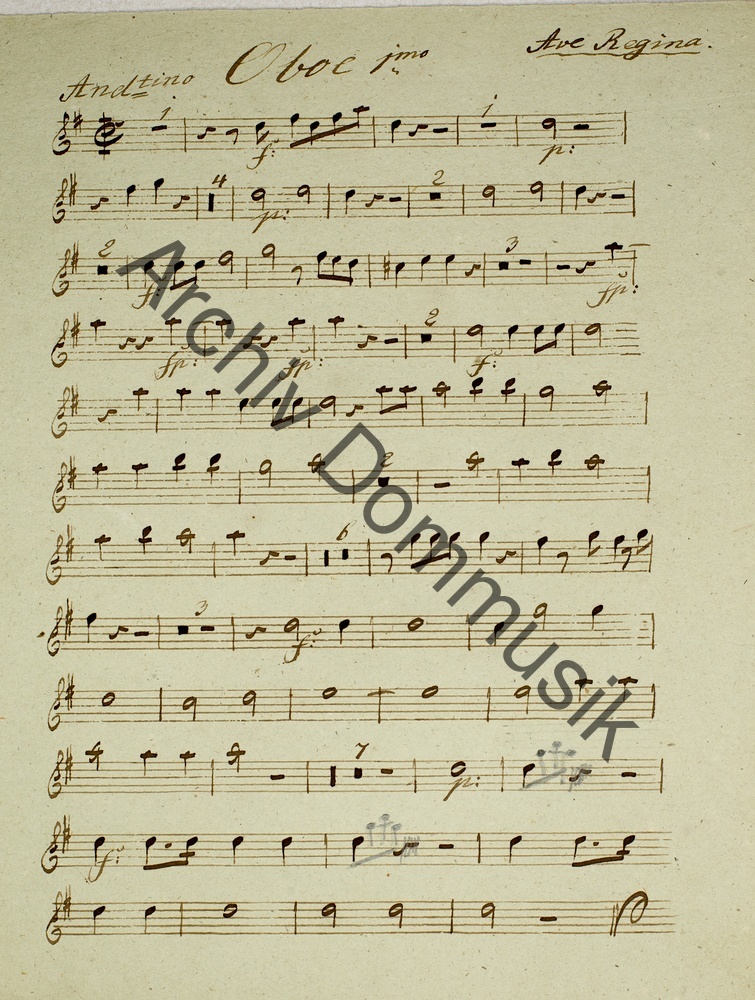 Ave Regina.
Oboe jmo
Andtino
1 1
f: p:
4 2
p:
2 3
f: fp:
2
fp: fp: f:
2
6
3
f:
7
p:
f:
Archiv Dommusik